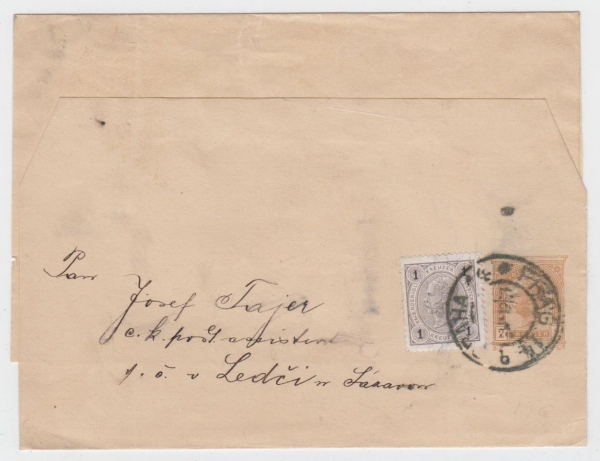 Pan
Josef Tajer
c. k. pošt assistent
v Ledči n Sázavou
1
KREUZER
1
PRAHA
PRAG